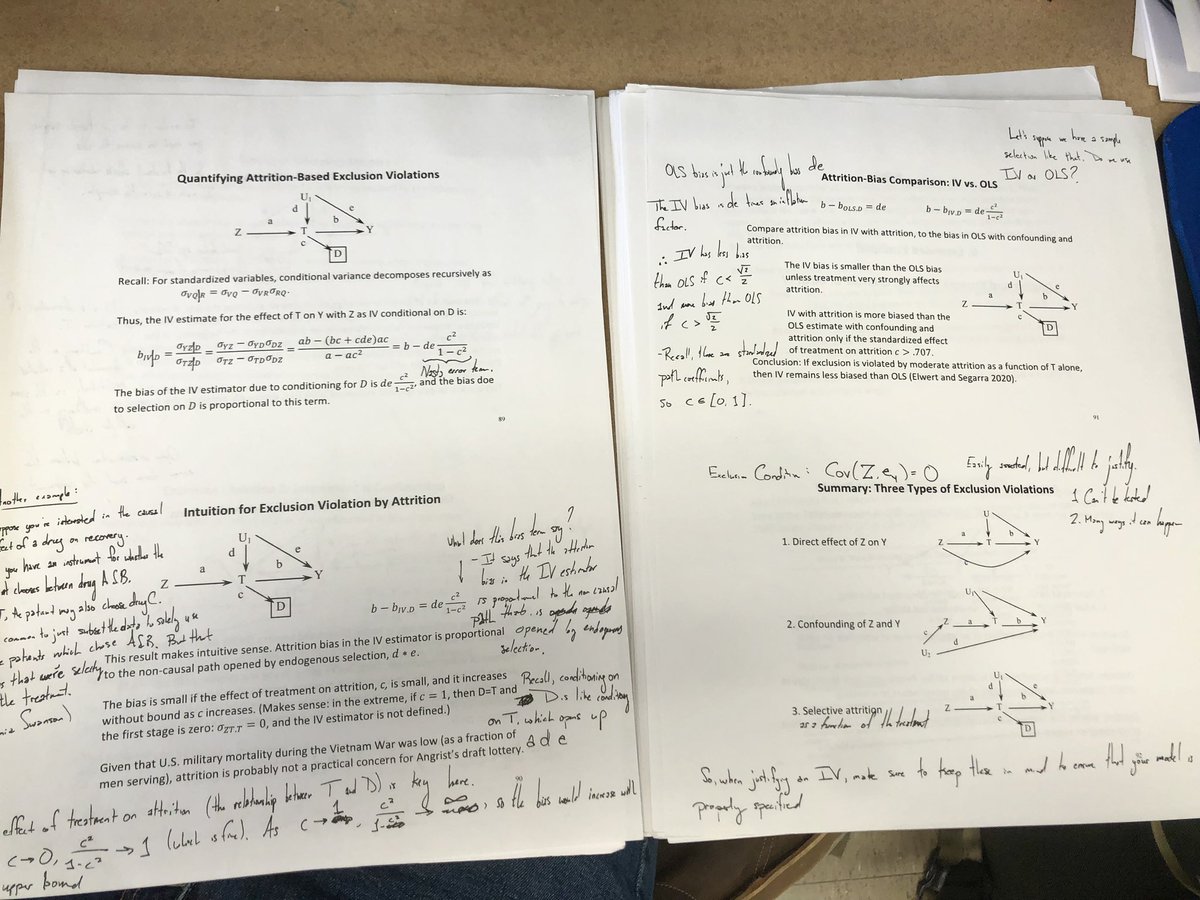 Quantifying Attrition-Based Exclusion Violations
U₁
d e
a b
Z T Y
c
D
Recall: For standardized variables, conditional variance decomposes recursively as
σVQ|R = σVQ − σVRσRQ.
Thus, the IV estimate for the effect of T on Y with Z as IV conditional on D is:
bIV|D = σYZ|D / σTZ|D = (σYZ − σYDσDZ) / (σTZ − σTDσDZ) = (ab − (bc + cde)ac) / (a − ac²) = b − de c²/(1 − c²)
Nasty error term.
The bias of the IV estimator due to conditioning for D is de c²/(1−c²), and the bias doe
to selection on D is proportional to this term.
89
Another example:
Suppose you're interested in the causal
effect of a drug on recovery.
you have an instrument for whether the
chooses between drug A & B.
the patient may also choose drug C.
common to just subset the data to solely use
patients which chose A & B. But that
that were selecting
the treatment.
Swanson)
Intuition for Exclusion Violation by Attrition
U₁
d e
a b
Z T Y
c
D
b − bIV.D = de c²/(1−c²)
What does this bias term say?
- It says that the attrition
bias in the IV estimator
is proportional to the non causal
path that is
opened by endogenous
selection.
This result makes intuitive sense. Attrition bias in the IV estimator is proportional
to the non-causal path opened by endogenous selection, d ∗ e.
The bias is small if the effect of treatment on attrition, c, is small, and it increases
without bound as c increases. (Makes sense: in the extreme, if c = 1, then D=T and
the first stage is zero: σZT.T = 0, and the IV estimator is not defined.)
Recall, conditioning on
D is like conditioning
on T, which opens up
a d e
Given that U.S. military mortality during the Vietnam War was low (as a fraction of
men serving), attrition is probably not a practical concern for Angrist's draft lottery.
90
effect of treatment on attrition (the relationship between T and D) is key here.
c→0, c²/(1-c²) → 1 (which is fine). As c→1, c²/(1- → ∞, so the bias would increase with
upper bound
Let's suppose we have a sample
selection like that. Do we use
IV or OLS?
OLS bias is just the confounding bias de
Attrition-Bias Comparison: IV vs. OLS
The IV bias is de times an inflation
factor.
b − bOLS.D = de
b − bIV.D = de c²/(1−c²)
Compare attrition bias in IV with attrition, to the bias in OLS with confounding and
attrition.
∴ IV has less bias
than OLS if c < √2/2
and more bias than OLS
if c > √2/2
The IV bias is smaller than the OLS bias
unless treatment very strongly affects
attrition.
IV with attrition is more biased than the
OLS estimate with confounding and
attrition only if the standardized effect
of treatment on attrition c > .707.
U₁
d e
a b
Z T Y
c
D
-Recall, these are standardized
path coefficients,
so c ∈ [0, 1].
Conclusion: If exclusion is violated by moderate attrition as a function of T alone,
then IV remains less biased than OLS (Elwert and Segarra 2020).
91
Exclusion Condition: Cov(Z, ey) = 0
Easily asserted, but difficult to justify.
1 Can't be tested
2. Many ways it can happen
Summary: Three Types of Exclusion Violations
1. Direct effect of Z on Y
U
a b
Z T Y
c
2. Confounding of Z and Y
U₁
Z a T b Y
c d
U₂
3. Selective attrition
as a function of the treatment
U₁
d e
a b
Z T Y
c
D
So, when justifying an IV, make sure to keep these in mind to ensure that your model is
properly specified